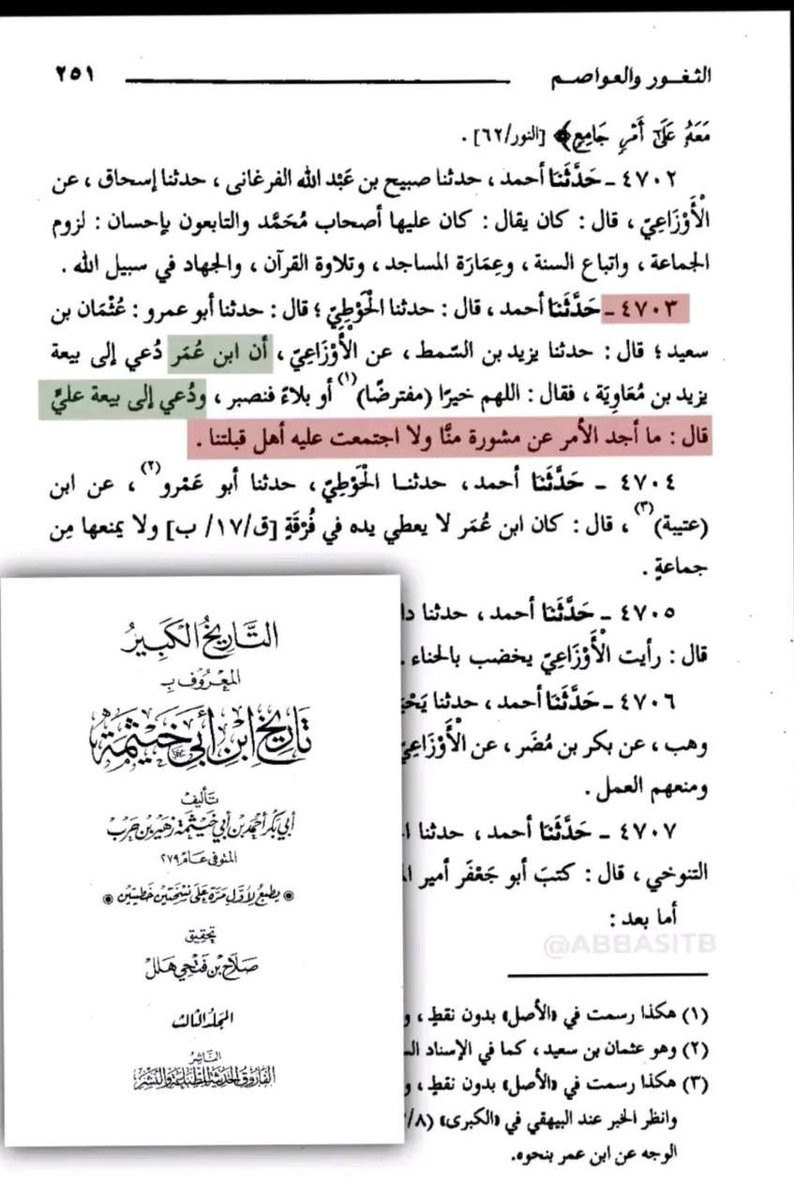 الثغور والعواصم ٢٥١
مَعَهُ عَلَىٰٓ أَمْرٍ جَامِعٍ﴾ [النور/٦٢] .
٤٧٠٢ ـ حَدَّثَنَا أحمد ، حدثنا صبيح بن عَبْد الله الفرغانى ، حدثنا إسحاق ، عن
الْأَوْزَاعِيّ ، قال : كان يقال : كان عليها أصحاب مُحَمَّد والتابعون بإحسان : لزوم
الجماعة ، واتباع السنة ، وعِمَارَة المساجد ، وتلاوة القرآن ، والجهاد في سبيل الله .
٤٧٠٣ ـ حَدَّثَنَا أحمد ، قال : حدثنا الْحَوْطِيّ ؛ قال : حدثنا أبو عمرو : عُثْمَان بن
سعيد ؛ قال : حدثنا يزيد بن السّمط ، عن الْأَوْزَاعِيّ ، أن ابن عُمَر دُعي إلى بيعة
يزيد بن مُعَاوِيَة ، فقال : اللهم خيرًا (مفترضًا)(١) أو بلاءً فنصبر ، ودُعي إلى بيعة عليٍّ
قال : ما أجد الأمر عن مشورة منَّا ولا اجتمعت عليه أهل قبلتنا .
٤٧٠٤ ـ حَدَّثَنَا أحمد ، حدثنا الْحَوْطِيّ ، حدثنا أبو عَمْرو(٢) ، عن ابن
(عتيبة)(٣) ، قال : كان ابن عُمَر لا يعطي يده في فُرْقَةٍ [ق/١٧/ ب] ولا يمنعها مِن
جماعةٍ .
٤٧٠٥ ـ حَدَّثَنَا أحمد ، حدثنا دا
قال : رأيت الْأَوْزَاعِيّ يخضب بالحناء .
٤٧٠٦ ـ حَدَّثَنَا أحمد ، حدثنا يَحْيَ
وهب ، عن بكر بن مُضَر ، عن الْأَوْزَاعِيّ
ومنعهم العمل .
٤٧٠٧ ـ حَدَّثَنَا أحمد ، حدثنا
التنوخي ، قال : كتبَ أبو جَعْفَر أمير
أما بعد :
@ABBASITB
(١) هكذا رسمت في «الأصل» بدون نقطٍ ، و
(٢) وهو عثمان بن سعيد ، كما في الإسناد
(٣) هكذا رسمت في «الأصل» بدون نقطٍ ، و
وانظر الخبر عند البيهقي في «الكبرى» (٨/
الوجه عن ابن عمر بنحوه.
التَّاريخُ الكَبِيرُ
المَعْرُوف بِـ
تَاريخ ابْنِ أَبِي خَيْثَمَة
تأليف
أبي بكر أحمد بن أبي خيثمة زهير بن حرب
المتوفى عام ٢٧٩هـ
يطبع لأول مرة على نسختين خطيتين
تحقيق
صلاح بن فتحي هلل
المجلد الثالث
الناشر
الفاروق الحديثة للطباعة والنشر